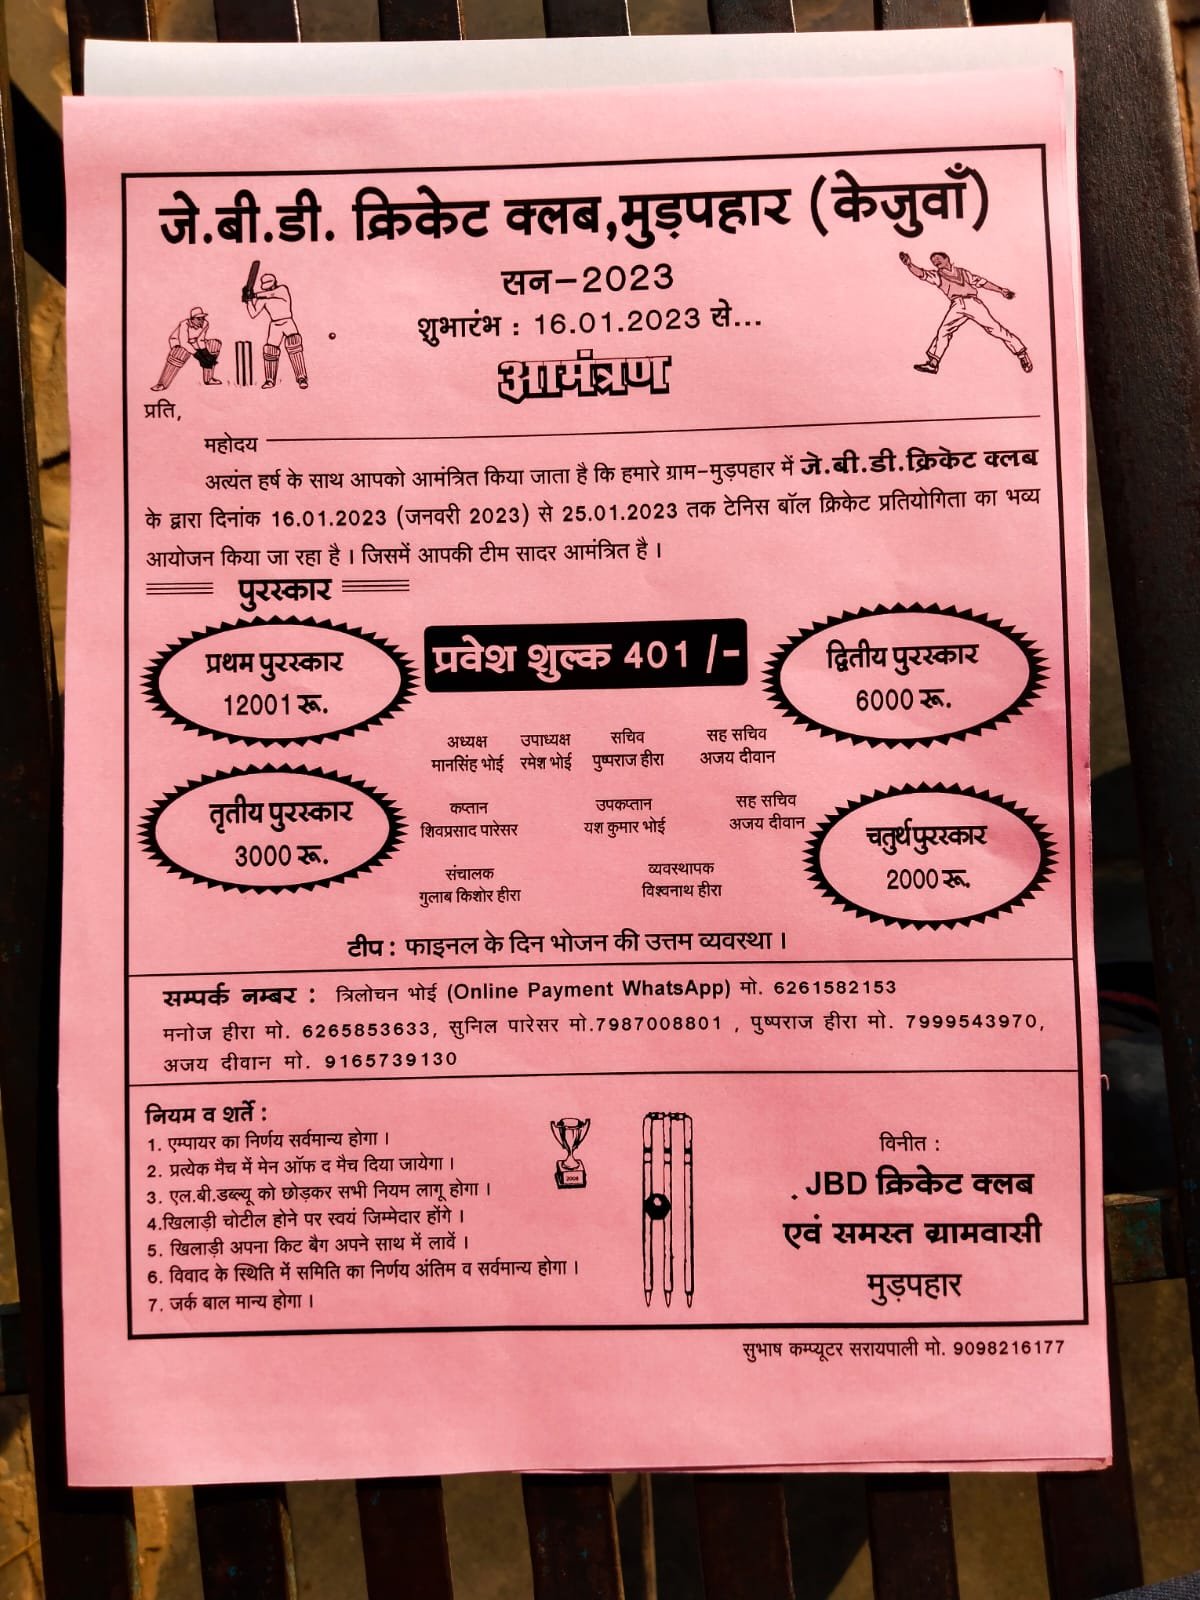 जे.बी.डी. क्रिकेट क्लब,मुड़पहार (केजुवाँ)
सन-2023
शुभारंभ : 16.01.2023 से...
आमंत्रण
प्रति,
महोदय
अत्यंत हर्ष के साथ आपको आमंत्रित किया जाता है कि हमारे ग्राम-मुड़पहार में जे.बी.डी.क्रिकेट क्लब
के द्वारा दिनांक 16.01.2023 (जनवरी 2023) से 25.01.2023 तक टेनिस बॉल क्रिकेट प्रतियोगिता का भव्य
आयोजन किया जा रहा है। जिसमें आपकी टीम सादर आमंत्रित है।
पुरस्कार
प्रथम पुरस्कार
12001 रू.
प्रवेश शुल्क 401 /-
द्वितीय पुरस्कार
6000 रू.
अध्यक्ष उपाध्यक्ष सचिव सह सचिव
मानसिंह भोई रमेश भोई पुष्पराज हीरा अजय दीवान
तृतीय पुरस्कार
3000 रू.
कप्तान उपकप्तान सह सचिव
शिवप्रसाद पारेसर यश कुमार भोई अजय दीवान
चतुर्थ पुरस्कार
2000 रू.
संचालक व्यवस्थापक
गुलाब किशोर हीरा विश्वनाथ हीरा
टीप : फाइनल के दिन भोजन की उत्तम व्यवस्था।
सम्पर्क नम्बर : त्रिलोचन भोई (Online Payment WhatsApp) मो. 6261582153
मनोज हीरा मो. 6265853633, सुनिल पारेसर मो.7987008801 , पुष्पराज हीरा मो. 7999543970,
अजय दीवान मो. 9165739130
नियम व शर्ते :
1. एम्पायर का निर्णय सर्वमान्य होगा।
2. प्रत्येक मैच में मेन ऑफ द मैच दिया जायेगा।
3. एल.बी.डब्ल्यू को छोड़कर सभी नियम लागू होगा।
4.खिलाड़ी चोटील होने पर स्वयं जिम्मेदार होंगे।
5. खिलाड़ी अपना किट बैग अपने साथ में लावें।
6. विवाद के स्थिति में समिति का निर्णय अंतिम व सर्वमान्य होगा।
7. जर्क बाल मान्य होगा।
2008
विनीत :
JBD क्रिकेट क्लब
एवं समस्त ग्रामवासी
मुड़पहार
सुभाष कम्प्यूटर सरायपाली मो. 9098216177